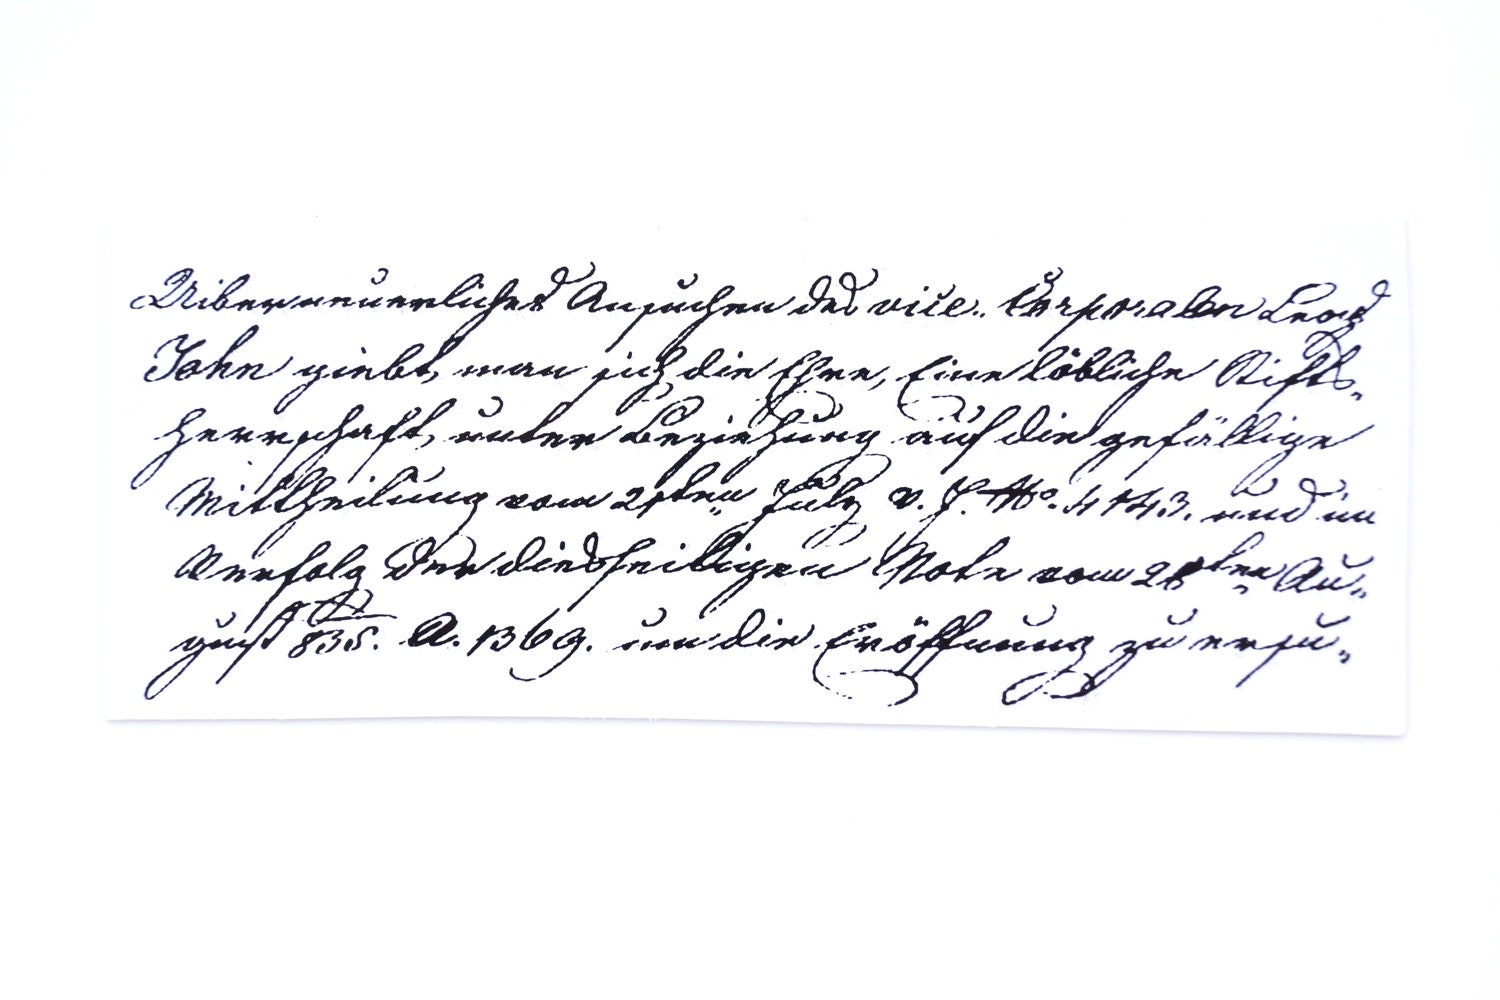 Uiber neuerliches Ansuchen des vice. Corporalen Leop
John giebt man sich die Ehre, Eine löbliche Stifts-
herrschaft, unter Beziehung auf die gefällige
Mittheilung vom 21ten July v. J. No. 4143. und im
Verfolg der diesseitigen Note vom ten Au-
gust 835. A. 1369. um die Eröffnung zu ersu-